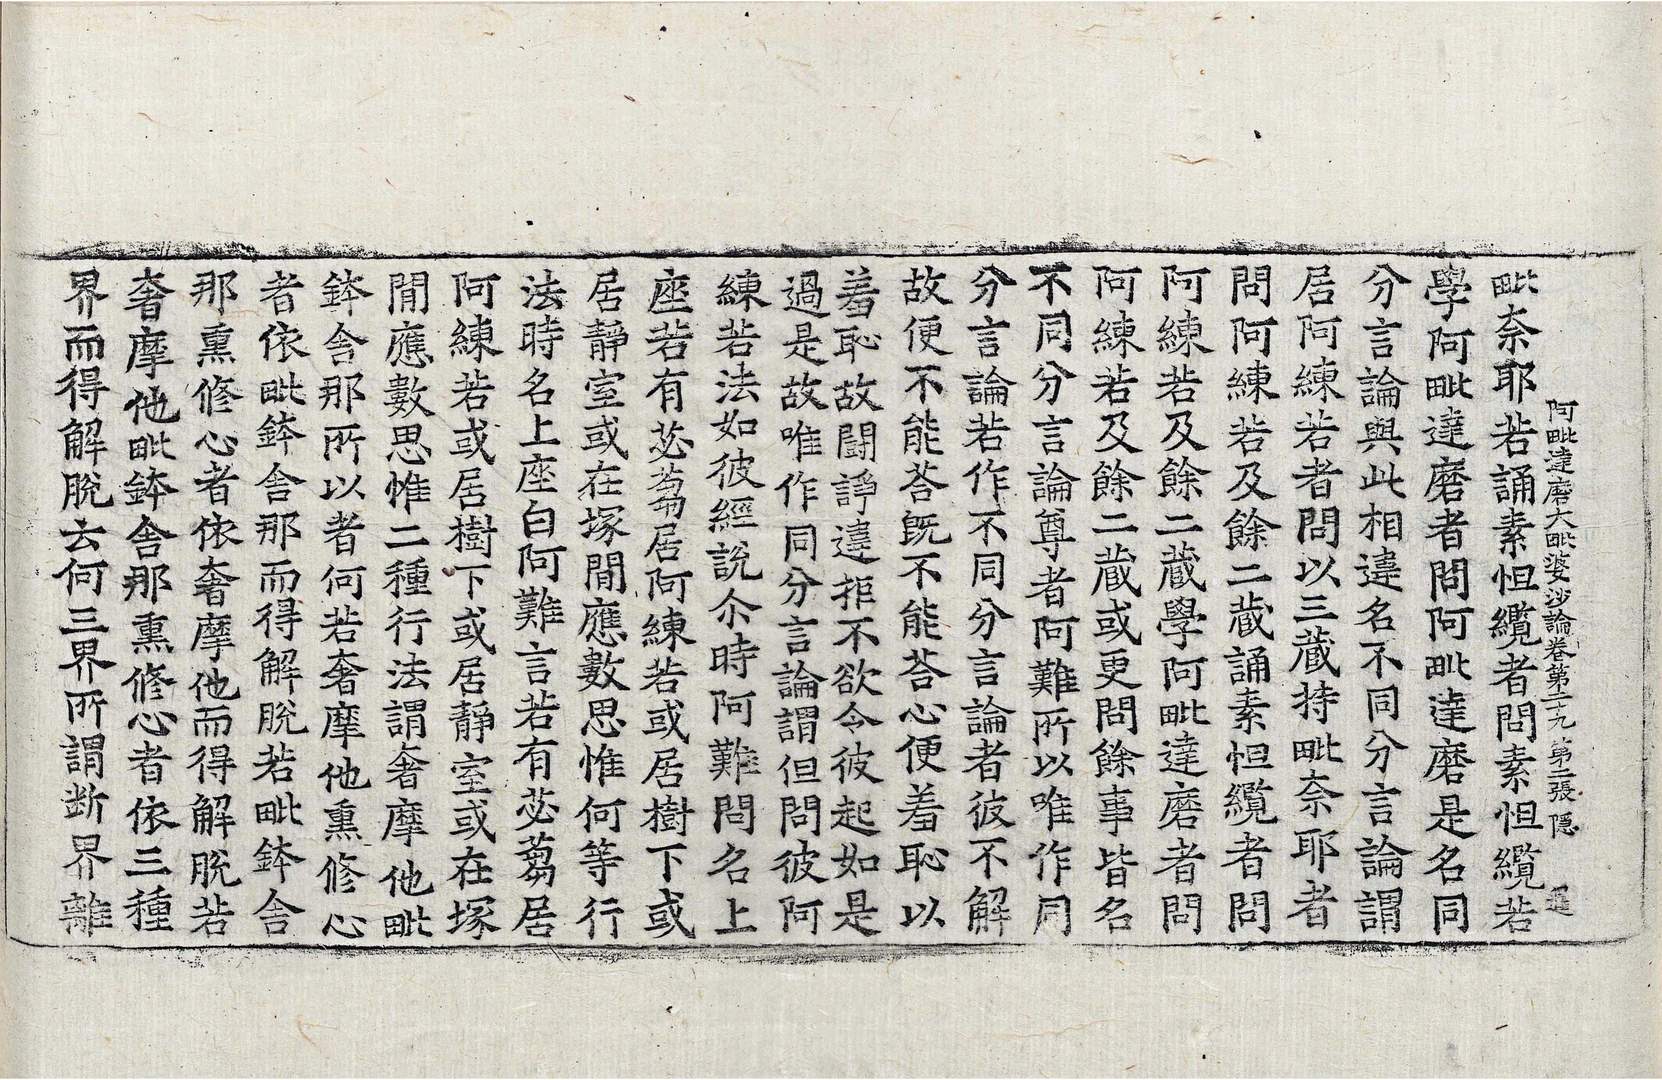 阿毗達磨大毗婆沙論卷第二十九 第二張 隱
毗奈耶若誦素怛纜者問素怛纜若
學阿毗達磨者問阿毗達磨是名同
分言論與此相違名不同分言論謂
居阿練若者問以三藏持毗奈耶者
問阿練若及餘二藏誦素怛纜者問
阿練若及餘二藏學阿毗達磨者問
阿練若及餘二藏或更問餘事皆名
不同分言論尊者阿難所以唯作同
分言論若作不同分言論者彼不解
故便不能荅旣不能荅心便羞恥以
羞恥故鬪諍違拒不欲令彼起如是
過是故唯作同分言論謂但問彼阿
練若法如彼經說尒時阿難問名上
座若有苾蒭居阿練若或居樹下或
居靜室或在塚閒應數思惟何等行
法時名上座白阿難言若有苾蒭居
阿練若或居樹下或居靜室或在塚
閒應數思惟二種行法謂奢摩他毗
鉢舍那所以者何若奢摩他熏修心
者依毗鉢舍那而得解脫若毗鉢舍
那熏修心者依奢摩他而得解脫若
奢摩他毗鉢舍那熏修心者依三種
界而得解脫去何三界所謂斷界離